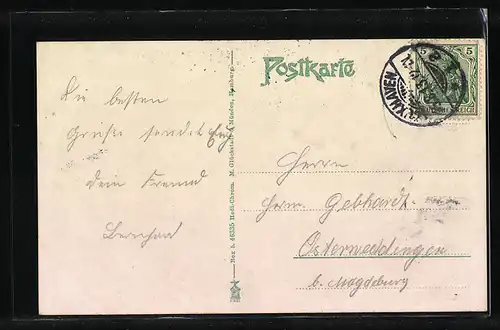 Postkarte
5
REICH
Die besten
Grüße sendet Euch
Dein Freund
Bernhard
Nez A. 46335 Hedi-Chrom. M. Glückstadt & Münden, Hamburg.
Herrn
Herm. Gebhardt
Osterweddingen
b. Magdeburg